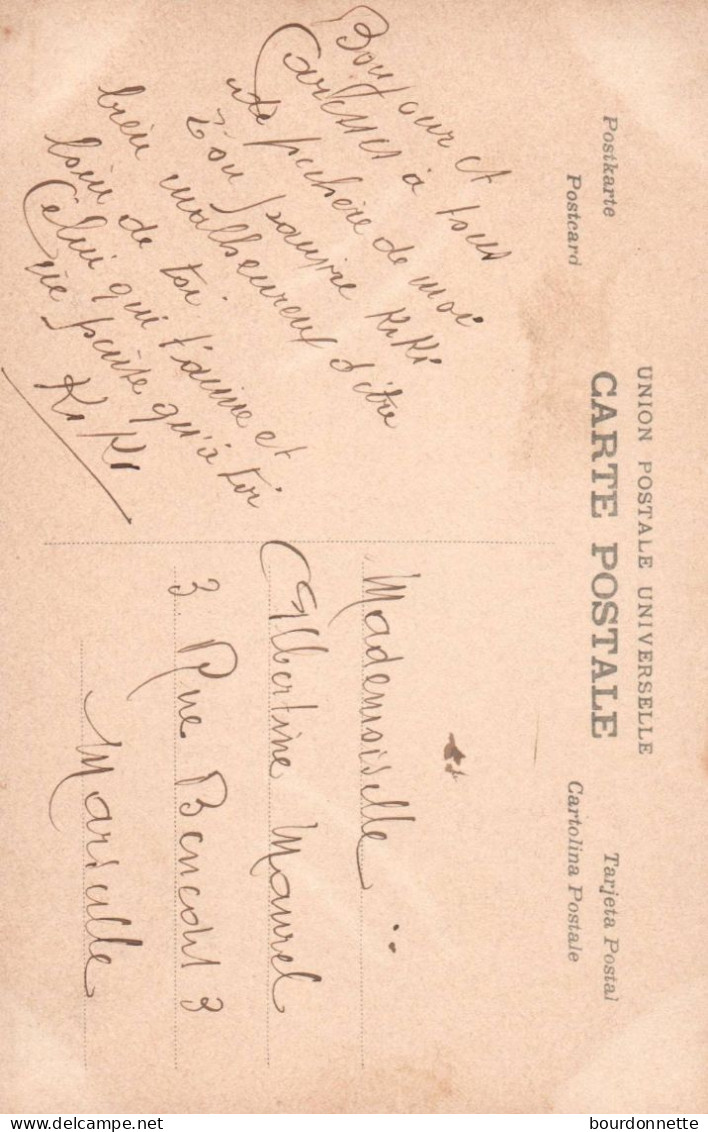 UNION POSTALE UNIVERSELLE
CARTE POSTALE
Postkarte
Postcard
Tarjeta Postal
Cartolina Postale
Bonjour et
Caresses à tous
de
de moi
Ton pauvre KiKi
bien malheureux d'être
loin de toi
Celui qui t'aime et
ne pense qu'à toi
KiKi
Mademoiselle
Albertine Maurel
3 Rue Bencourt 3
Marseille
bourdonnette